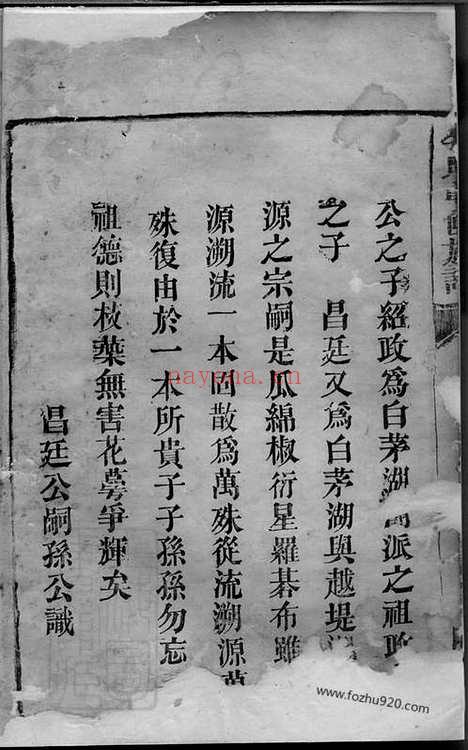 公之子紹政為白茅湖派之祖政
之子　昌廷又為白茅湖與越堤
源之宗嗣是瓜綿椒衍星羅碁布雖
源溯流一本固散為萬殊從流溯源萬
殊復由於一本所貴子子孫孫勿忘
祖德則枝葉無害花萼爭輝矣
昌廷公嗣孫公識
nayena.cn
www.fozhu920.com